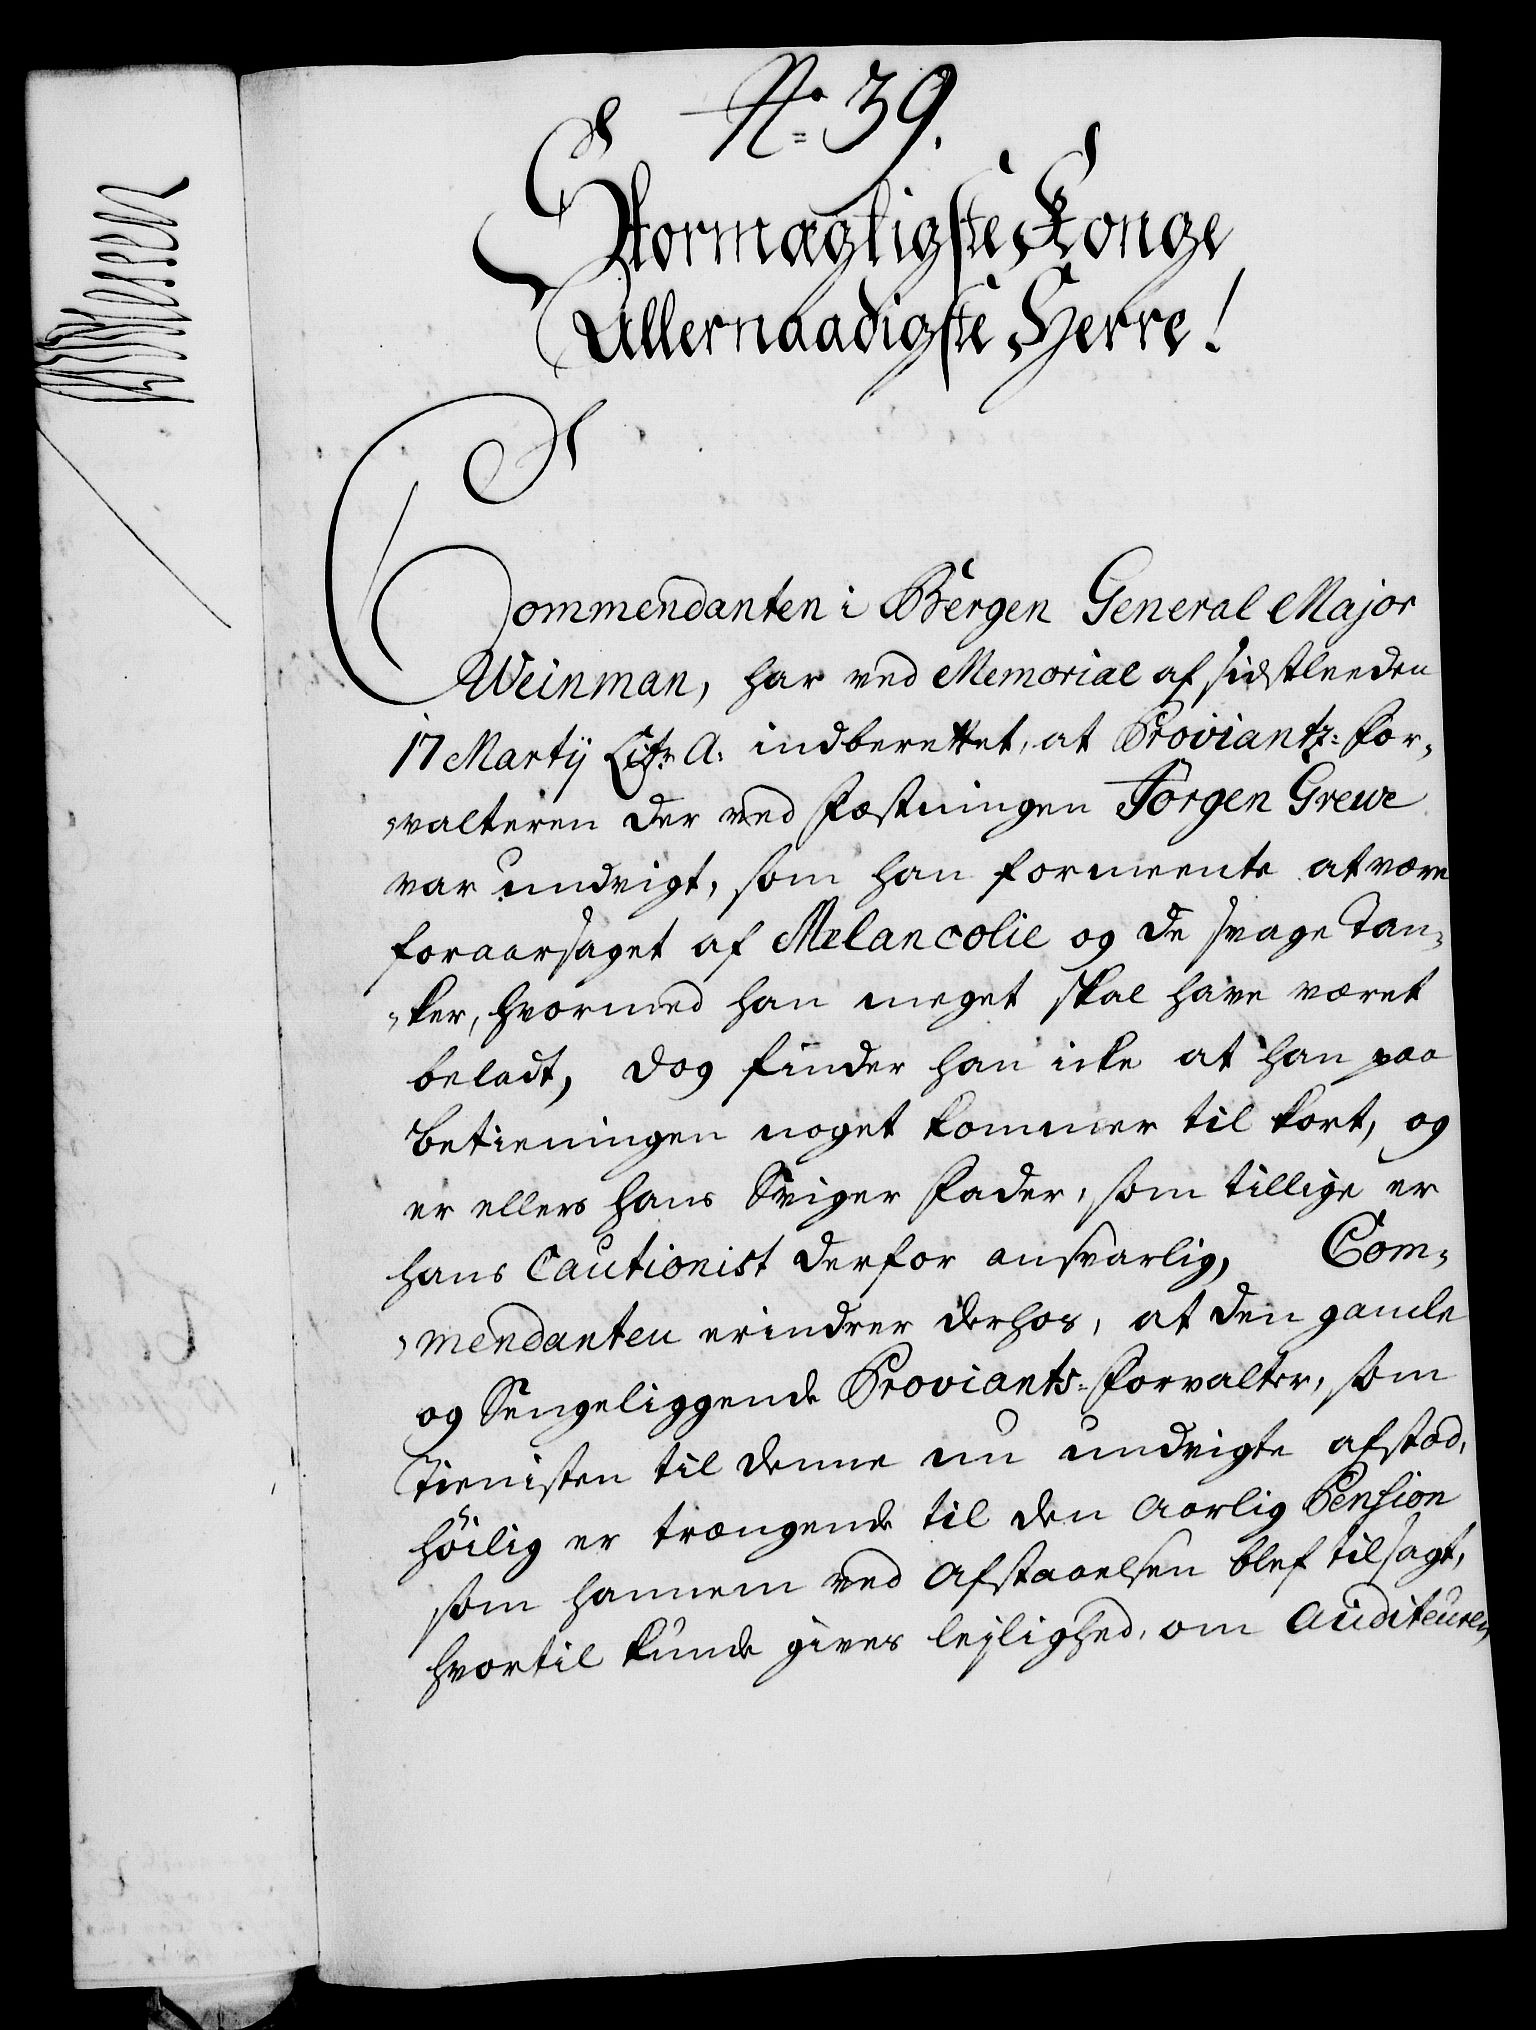 No. 39.
Stormægtigste Konge
Allernaadigste Herre!
Commendanten i Bergen General Major
Weinman, har ved Memorial af sidstleeden
17 Martÿ Litr A. indberettet, at Proviantz-For-
valteren der ved Fæstningen Jörgen Grewe
var undvigt, som han formeente at være
foraarsaget af Melancolie og de svage Tan-
ker, hvormed han meget skal have været
beladt, dog finder han icke at han paa
betieningen noget kommer til kort, og
er ellers hans Sviger Fader, som tillige er
hans Cautionist derfor ansvarlig, Com-
mendanten erindrer derhos, at den gamle
og Sengeliggende Proviants-Forvalter, som
Tienisten til denne nu undvigte afstod,
höilig er trængende til den Aarlig Pension
som hannem ved Afstaaelsen blef tilsagt,
hvortil kunde gives lejlighed, om Auditeuren,